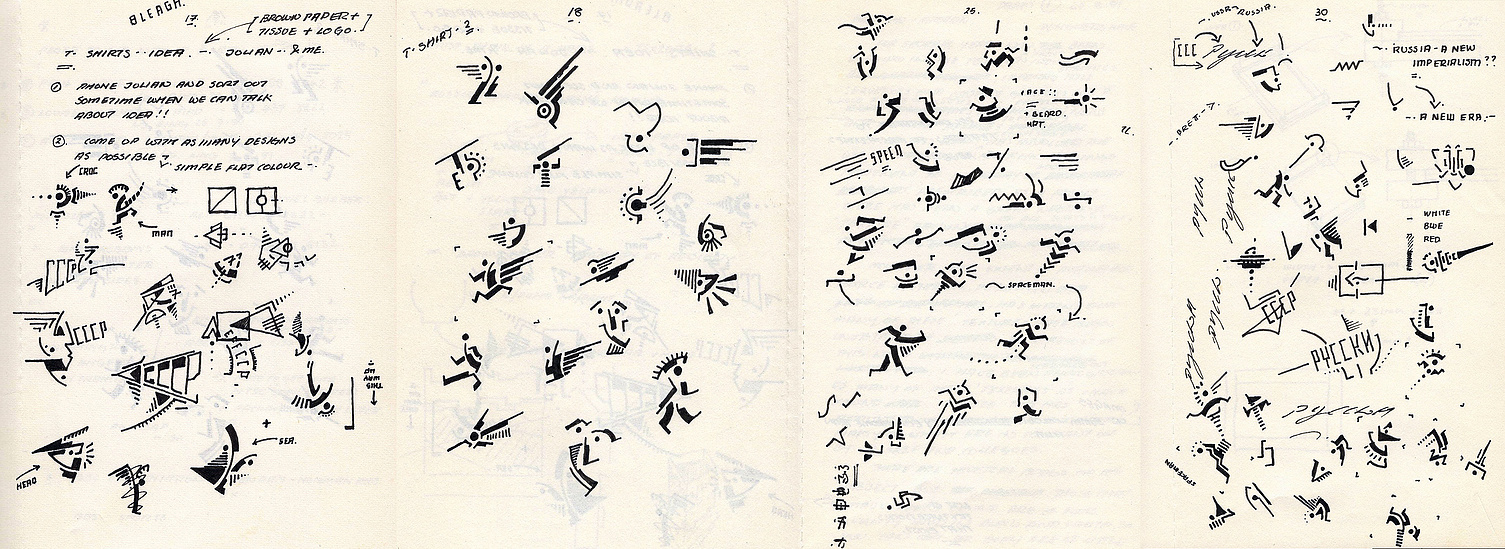 BLEAGH.
17.
BROWN PAPER +
TISSUE + LOGO.
T-SHIRTS - IDEA. - JULIAN - & ME.
① PHONE JULIAN AND SORT OUT
SOMETIME WHEN WE CAN TALK
ABOUT IDEA!!
② COME UP WITH AS MANY DESIGNS
AS POSSIBLE?
SIMPLE FLAT COLOUR -
CROC
MAN
CCCP
CCCP
CCCP
THIS
WAY UP
+
SEA.
HERO
18
T-SHIRT-2.
25.
FACE!!
+ BEARD.
HAT.
SPEED
~ SPACEMAN.
30
-USSR-RUSSIA.
~ RUSSIA - A NEW
IMPERIALISM??
- A NEW ERA.-
- WHITE
BLUE
RED
CCCP
РУССКИ
SPACEMAN